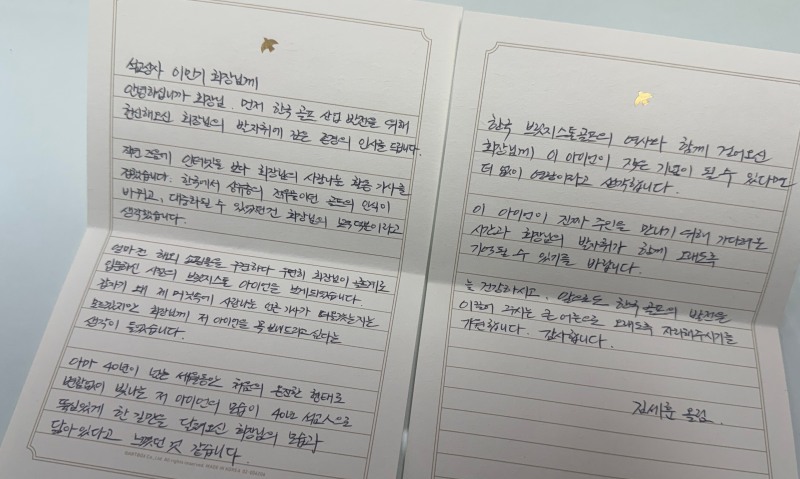 석교상사 이민기 회장님께
안녕하십니까 회장님. 먼저 한국 골프 산업 발전을 위해
헌신해오신 회장님의 발자취에 깊은 존경의 인사를 드립니다.
작년 즈음에 인터넷을 보다 회장님의 사랑나눔 활동 기사를
접했습니다. 한국에서 상류층의 전유물이던 골프의 인식이
바뀌고, 대중화될 수 있었던건 회장님의 노력 덕분이라고
생각했습니다.
얼마 전 해외 쇼핑몰을 구경하다 우연히 회장님이 골프계로
입문하신 시절의 브릿지스톤 아이언을 보게되었습니다.
갑자기 왜 제 머릿속에 사랑나눔 인터넷 기사가 떠올랐는지는
모르겠지만 회장님께 저 아이언을 꼭 보내드리고 싶다는
생각이 들었습니다.
아마 40년이 넘는 세월동안 처음의 온전한 형태로
변함없이 빛나는 저 아이언의 모습이 40년 석교인으로
뚝심있게 한 길만을 달려오신 회장님의 모습과
닮아있다고 느꼈던 것 같습니다.
한국 브릿지스톤골프의 역사와 함께 걸어오신
회장님께 이 아이언이 작은 기념이 될 수 있다면
더 없이 영광이라고 생각합니다.
이 아이언이 진짜 주인을 만나기 위해 기다려온
시간과 회장님의 발자취가 함께 오래도록
기억될 수 있기를 바랍니다.
늘 건강하시고, 앞으로도 한국 골프의 발전을
이끌어 주시는 큰 어른으로 오래도록 자리해주시기를
기원합니다. 감사합니다.
김세훈 올림.